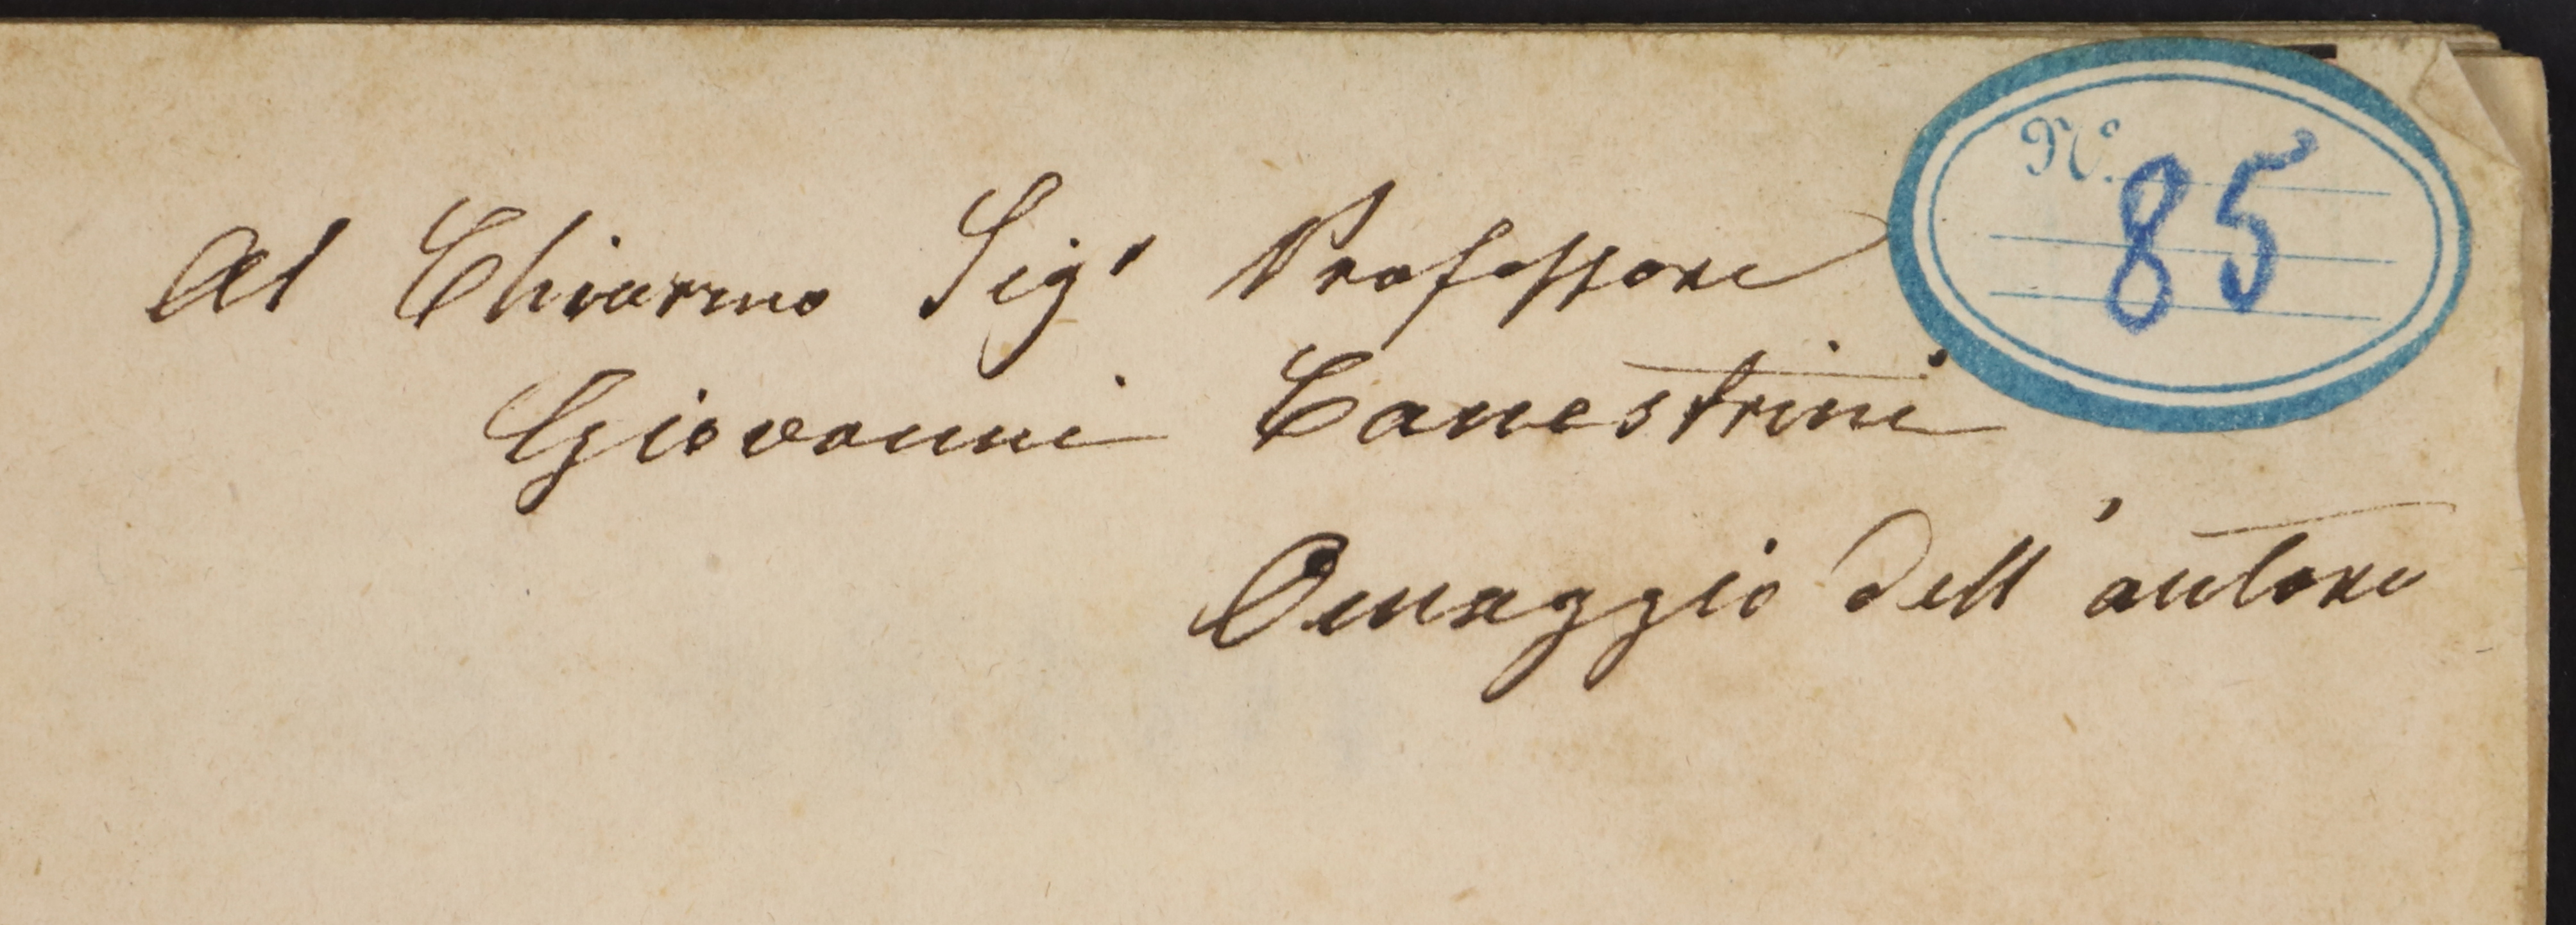 Al Chiarmo Sigr Professore
Giovanni Canestrini
Omaggio dell'autore
No. 85